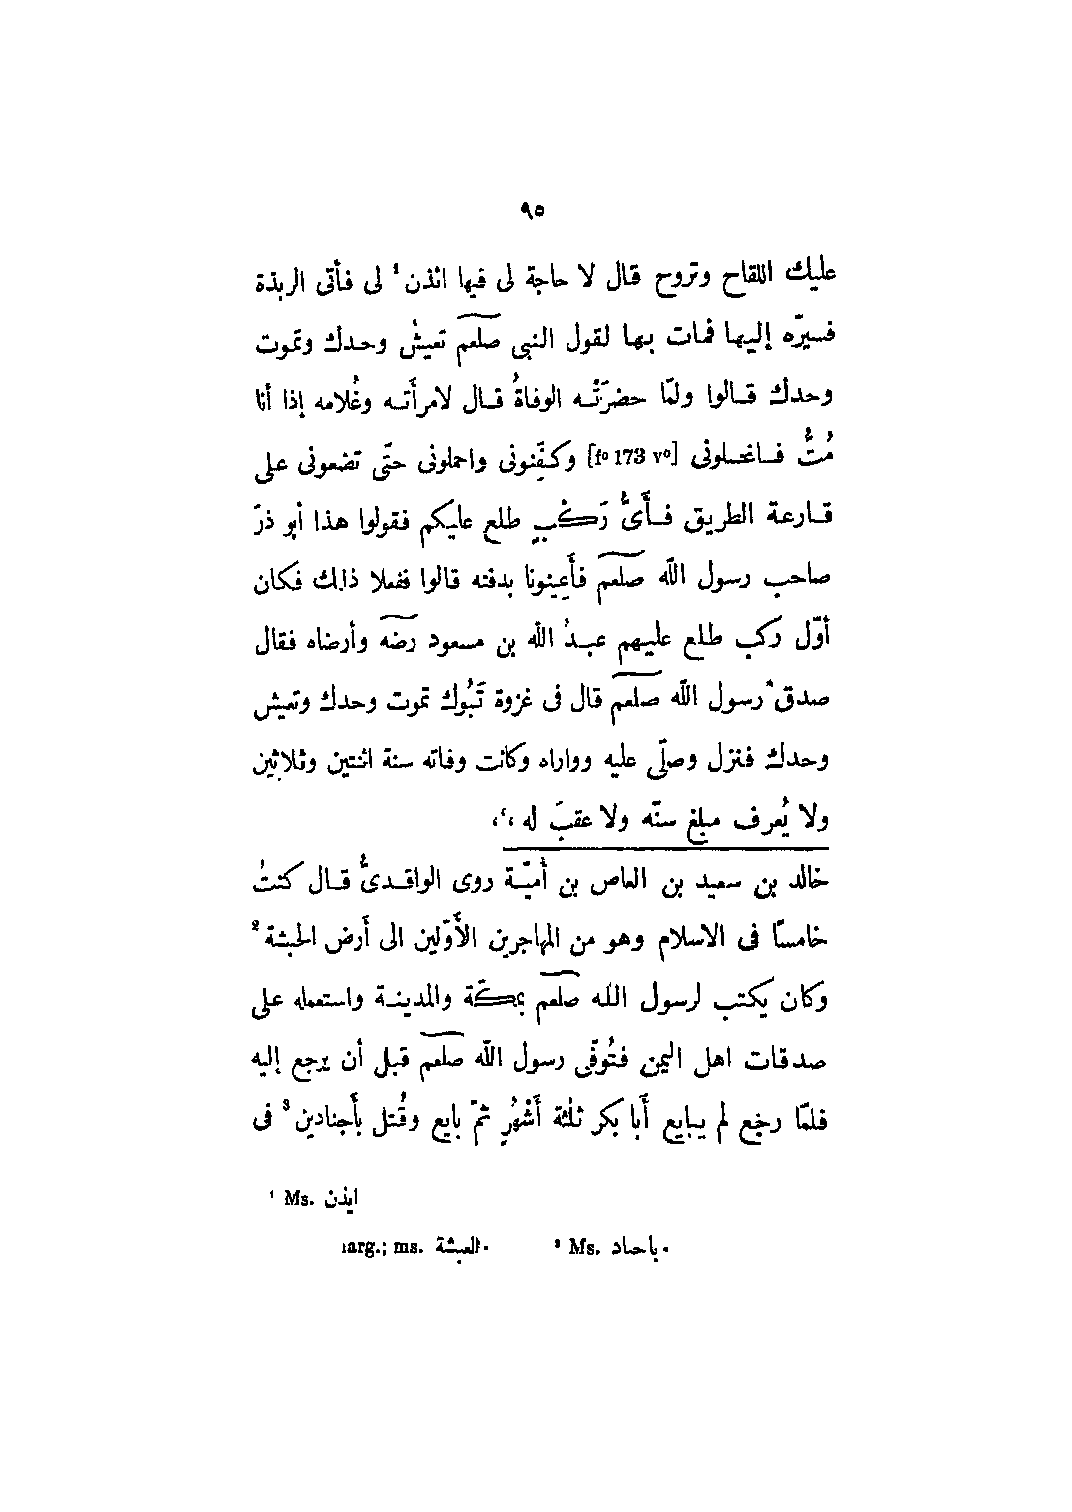 ٩٥
عليك اللقاح وتروح قال لا حاجة لى فيها ائذن¹ لى فأتى الربذة
فسيّره إليها فمات بها لقول النبى صلعم تعيشُ وحدك وتموت
وحدك قالوا ولمّا حضرَتْه الوفاةُ قال لامرأَته وغُلامه إذا أنا
مُتُّ فاغسلونى [fº 173 vº] وكفّنونى واحملونى حتّى تضعونى على
قارعة الطريق فأَىُّ رَكْبٍ طلع عليكم فقولوا هذا أبو ذرّ
صاحب رسول اللّه صلعم فأَعِينونا بدفنه قالوا ففعلا ذلك فكان
أوّل ركب طلع عليهم عبدُ اللّه بن مسعود رضه وأرضاه فقال
صدق رسول اللّه صلعم قال فى غزوة تَبُوك تموت وحدك وتعيش
وحدك فنزل وصلّى عليه وواراه وكانت وفاته سنة اثنتين وثلاثين
ولا يُعرف مبلغ سنّه ولا عقبَ له ،'،
خالد بن سعيد بن العاص بن أُميّة روى الواقدىُّ قال كنتُ
خامسًا فى الاسلام وهو من المهاجرين الأَوّلين الى أَرض الحبشة²
وكان يكتب لرسول الله صلعم بمكّة والمدينة واستعمله على
صدقات اهل اليمن فتُوفّى رسول اللّه صلعم قبل أن يرجع إليه
فلمّا رجع لم يبايع أَبا بكر ثلثة أَشْهُرٍ ثمّ بايع وقُتل بأَجنادين³ فى
¹ Ms. ايذن
arg.; ms. العبشة. ³ Ms. باحاد.